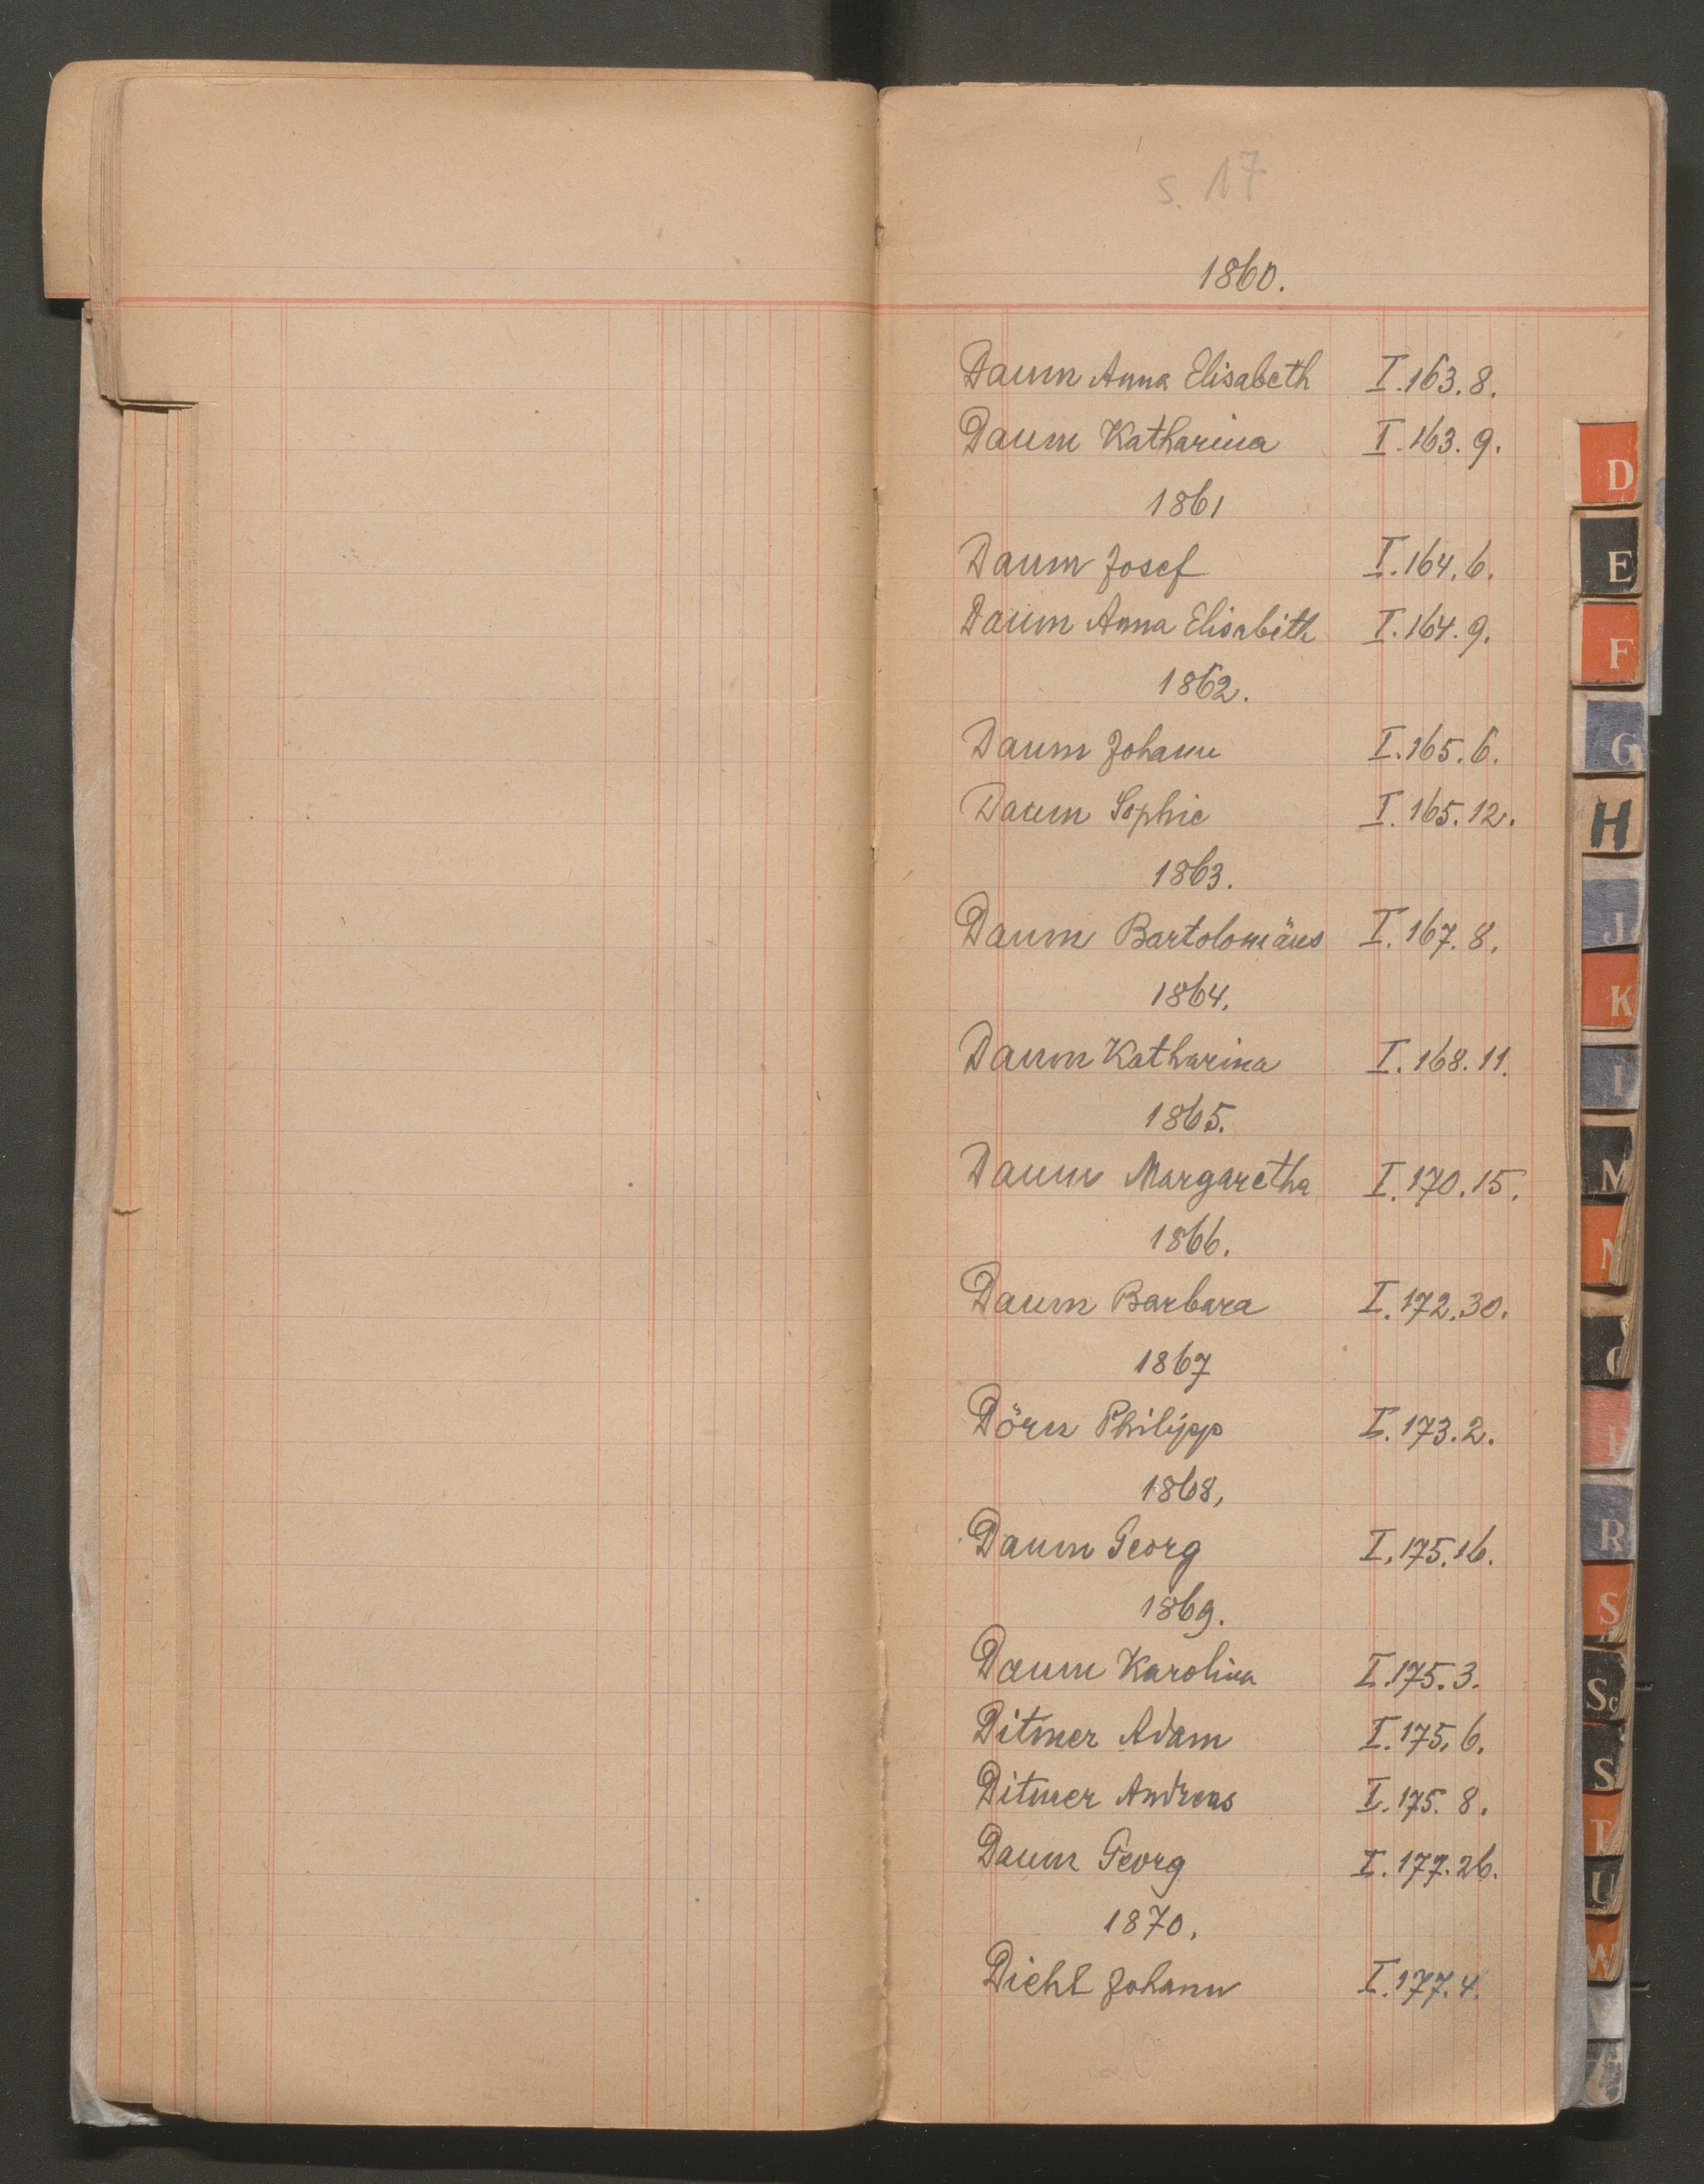 S. 17
1860.
Daum Anna Elisabeth I.163.8.
Daum Katharina I.163.9.
1861
Daum Josef I.164.6.
Daum Anna Elisabeth I.164.9.
1862.
Daum Johann I.165.6.
Daum Sophie I.165.12.
1863.
Daum Bartolomäus I.167.8.
1864.
Daum Katharina I.168.11.
1865.
Daum Margaretha I.170.15.
1866.
Daum Barbara I.172.30.
1867
Dörr Philipp I.173.2.
1868,
Daum Georg I.175.16.
1869.
Daum Karolina I.175.3.
Ditmer Adam I.175.6.
Ditmer Andreas I.175.8.
Daum Georg I.177.26.
1870.
Diehl Johann I.177.4.
20
D
E
F
G
H
J
K
M
N
R
S
Sc
S
T
U
W